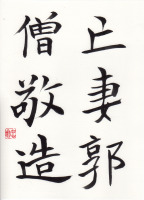 亡妻郭
僧敬造